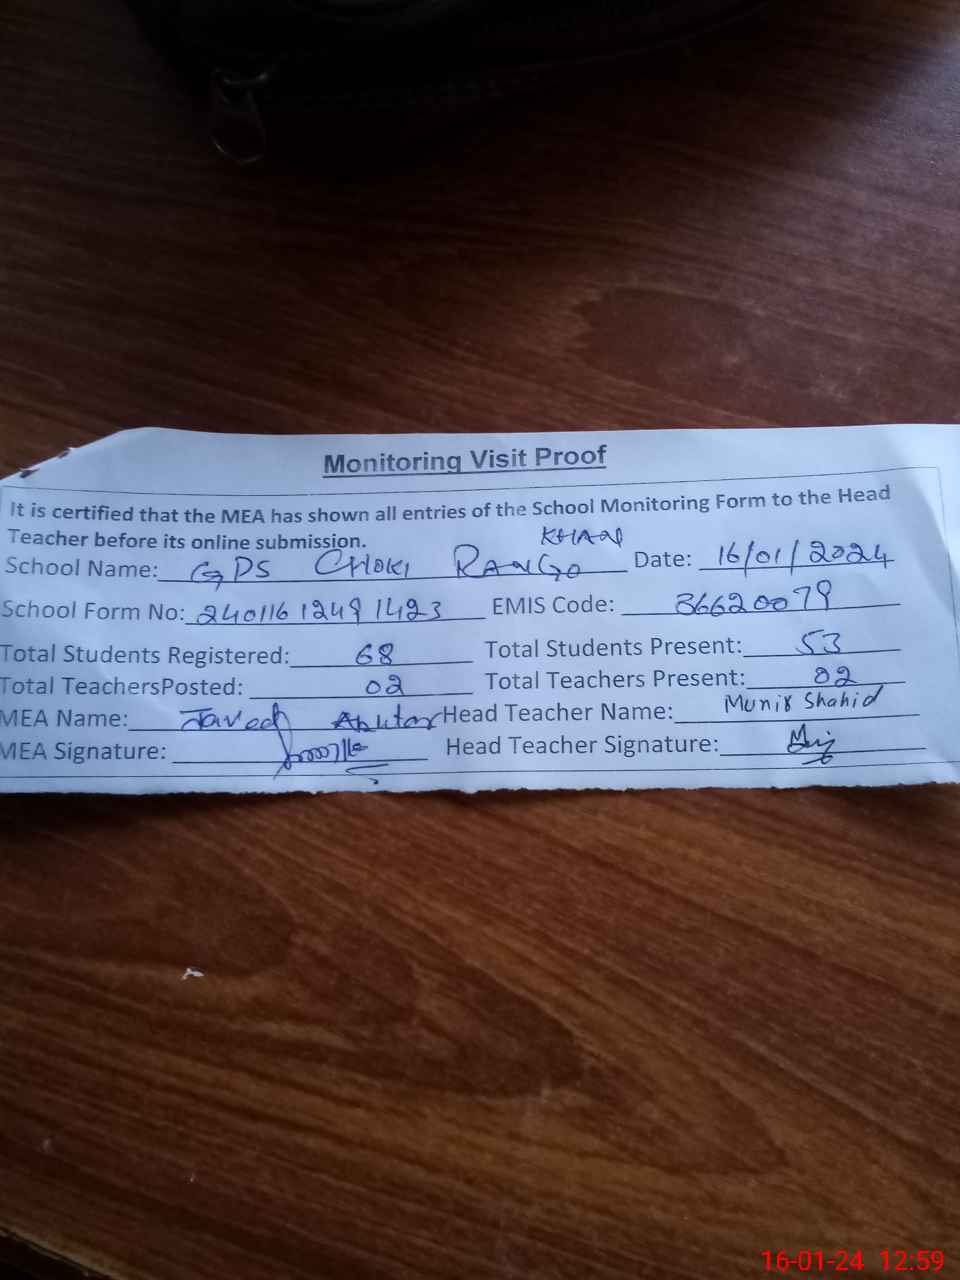 Monitoring Visit Proof
It is certified that the MEA has shown all entries of the School Monitoring Form to the Head
Teacher before its online submission.
School Name: GPS CHOKI RANGO KHAN Date: 16/01/2024
School Form No: 24011612491423 EMIS Code: 36620079
Total Students Registered: 68 Total Students Present: 53
Total TeachersPosted: 02 Total Teachers Present: 02
MEA Name: Javed Akhtar Head Teacher Name: Munir Shahid
MEA Signature: Head Teacher Signature:
16-01-24 12:59